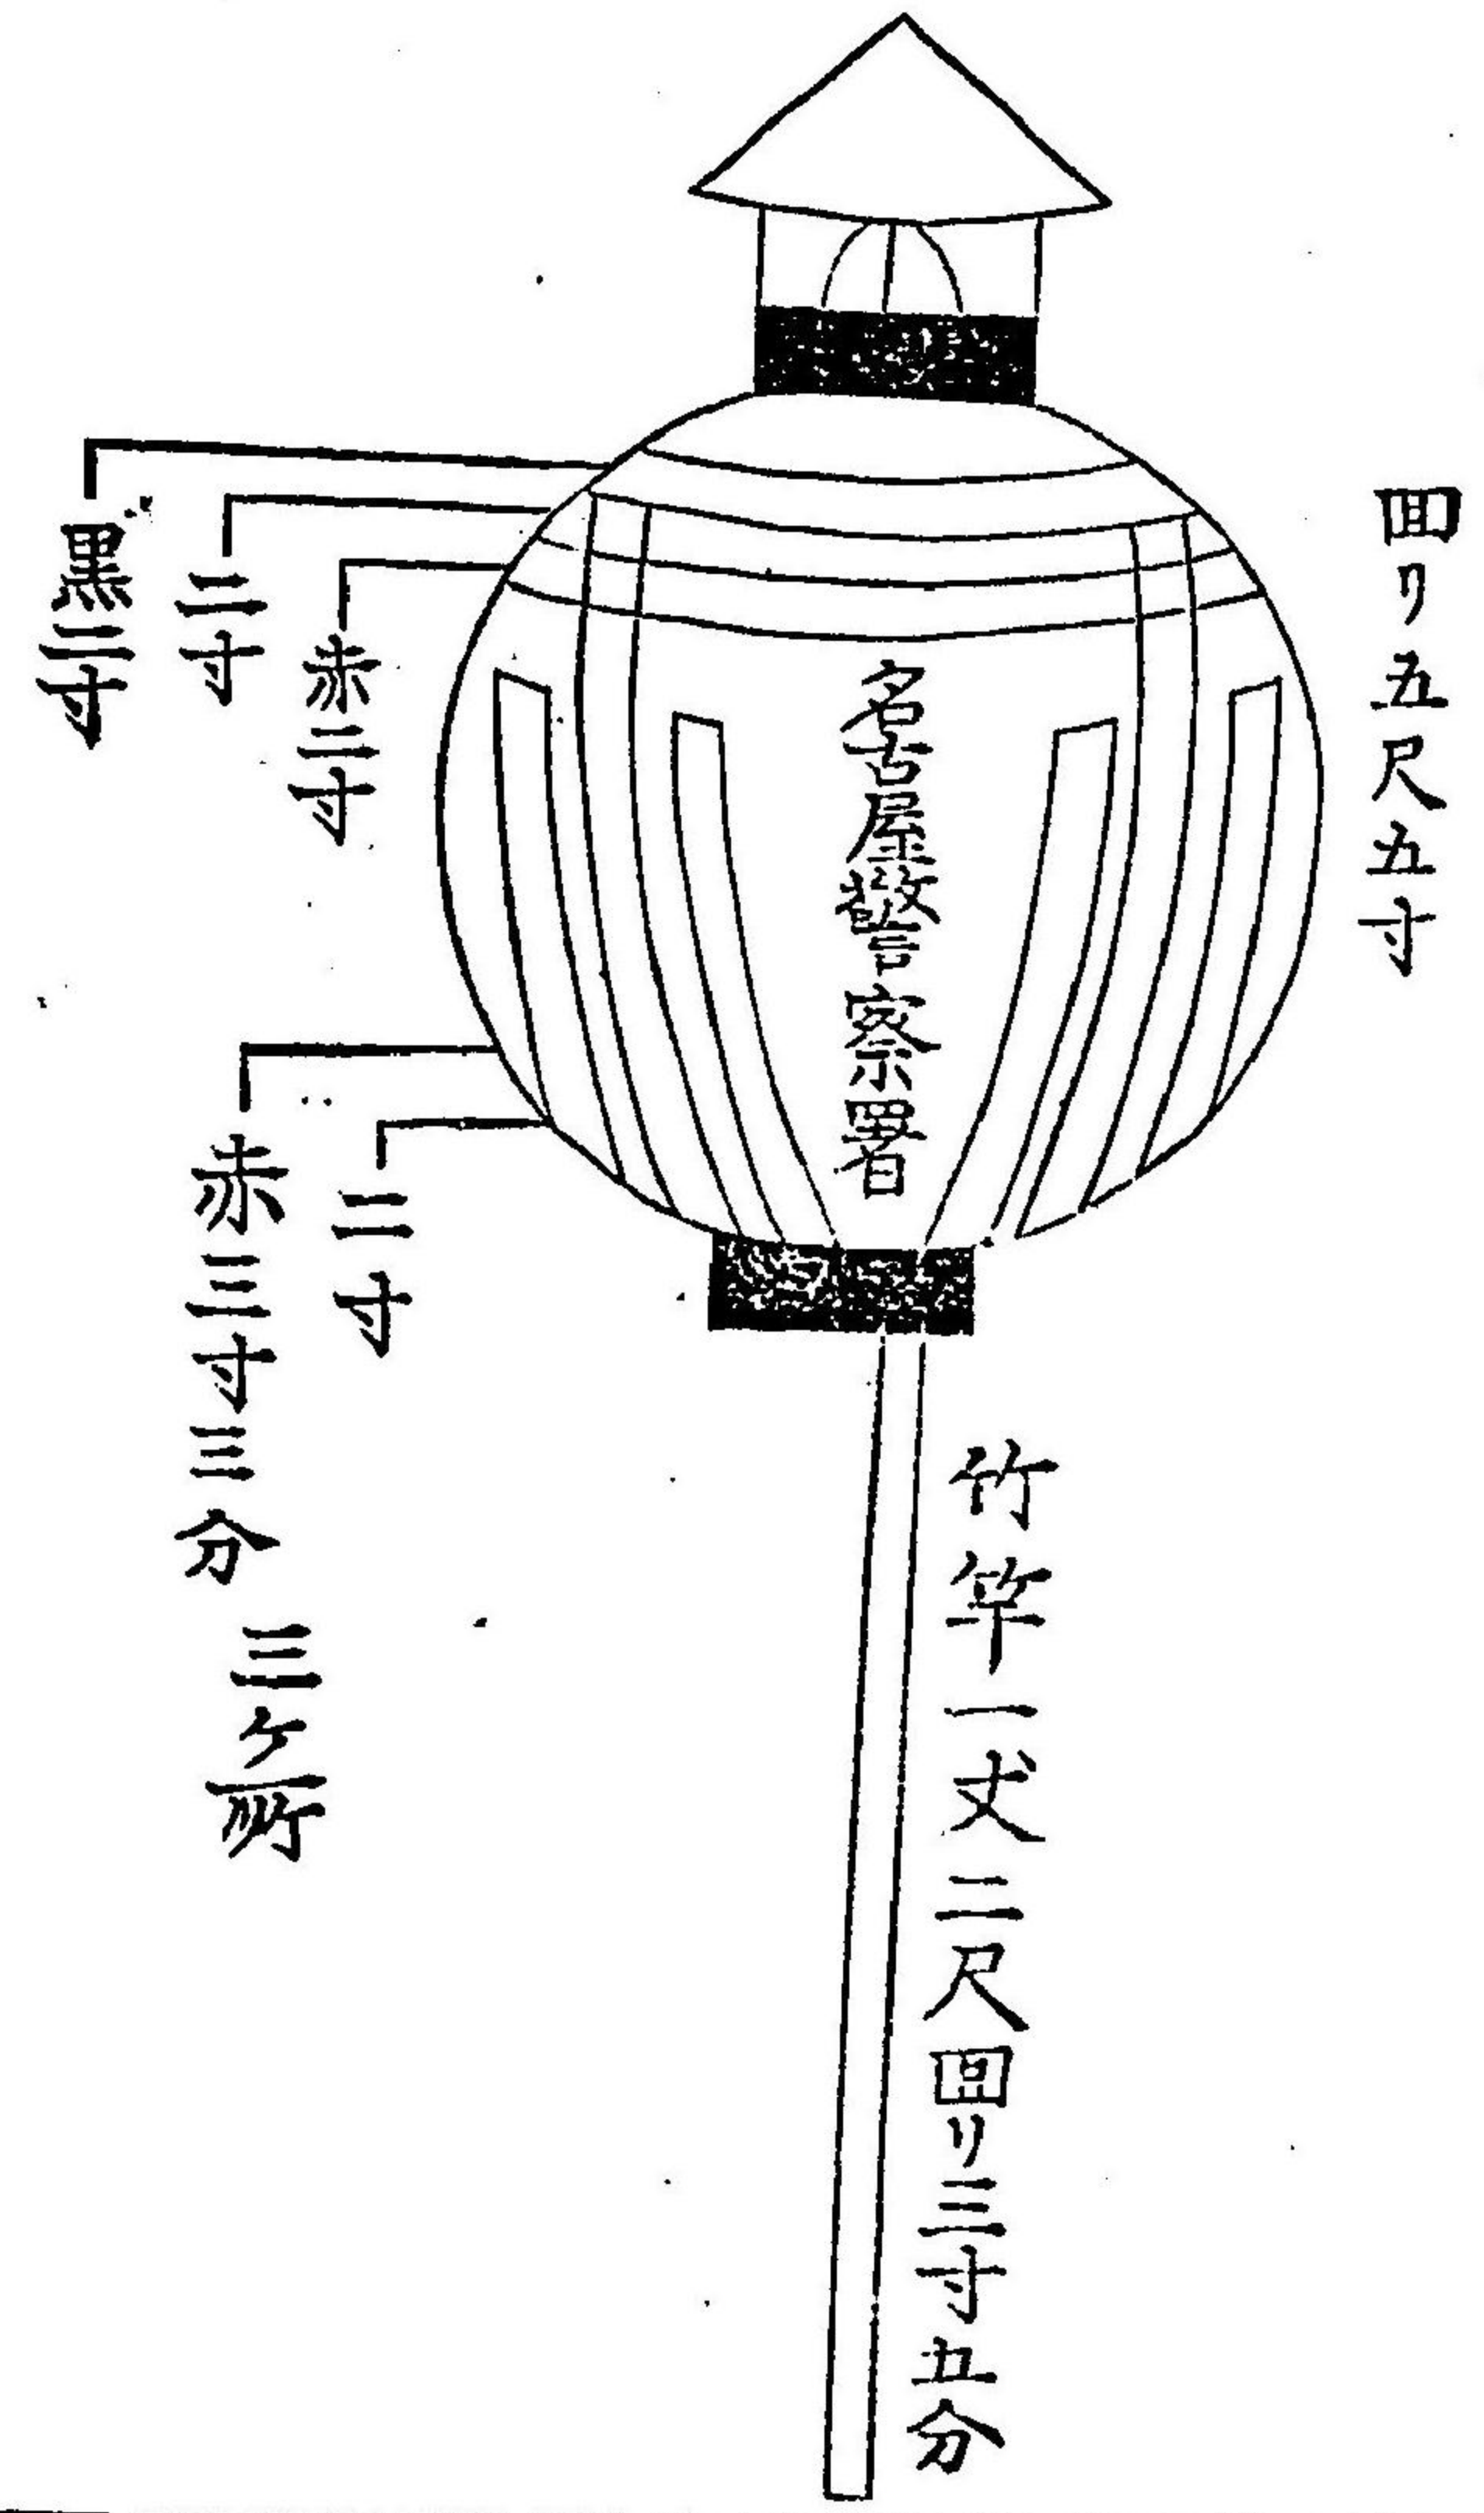 回リ五尺五寸
名古屋警察署
竹竿一丈二尺回リ三寸五分
赤二寸
二寸
黒二寸
二寸
赤三寸三分
三ケ所